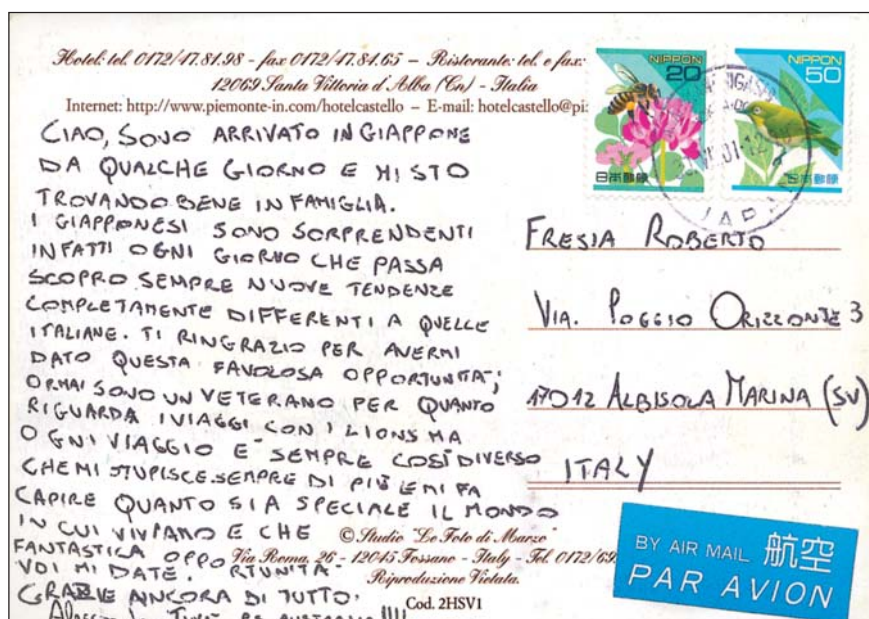 Hotel: tel. 0172/47.81.98 - fax 0172/47.84.65 – Ristorante: tel. e fax:
12069 Santa Vittoria d'Alba (Cn) - Italia
Internet: http://www.piemonte-in.com/hotelcastello – E-mail: hotelcastello@pi
CIAO, SONO ARRIVATO IN GIAPPONE
DA QUALCHE GIORNO E MI STO
TROVANDO BENE IN FAMIGLIA.
I GIAPPONESI SONO SORPRENDENTI
INFATTI OGNI GIORNO CHE PASSA
SCOPRO SEMPRE NUOVE TENDENZE
COMPLETAMENTE DIFFERENTI A QUELLE
ITALIANE. TI RINGRAZIO PER AVERMI
DATO QUESTA FAVOLOSA OPPORTUNITA';
ORMAI SONO UN VETERANO PER QUANTO
RIGUARDA I VIAGGI CON I LIONS MA
OGNI VIAGGIO E' SEMPRE COSÌ DIVERSO
CHE MI STUPISCE SEMPRE DI PIÙ E MI FA
CAPIRE QUANTO SIA SPECIALE IL MONDO
IN CUI VIVIAMO E CHE
FANTASTICA OPPORTUNITA'
VOI MI DATE.
GRAZIE ANCORA DI TUTTO.
AUSTRALIA!!!!
© Studio "Le Foto di Marzo"
Via Roma, 26 - 12045 Fossano - Italy - Tel. 0172/69
Riproduzione Vietata.
Cod. 2HSV1
NIPPON
20
日本郵便
NIPPON
50
日本郵便
JAPAN
FRESIA ROBERTO
VIA. POGGIO ORIZZONTE 3
17012 ALBISOLA MARINA (SV)
ITALY
BY AIR MAIL 航空
PAR AVION